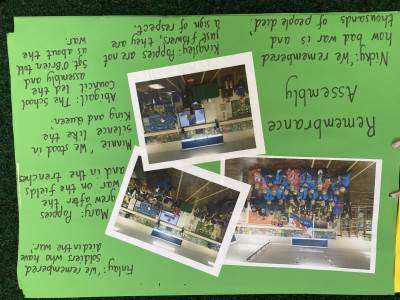 Remembrance
Assembly
Finlay: 'We remembered
soldiers who have
died in the war.'
Mary: Poppies
grew after the
war on the fields
and in the trenches
Minnie 'We stood in
silence like the
King and Queen.'
Abigail: The School
Council led the
assembly and
Sgt O'Brien told
us about the
war.
Nicky: 'We remembered
how bad war is and
thousands of people died.
Kingsley: Poppies are not
just flowers, they are
a sign of respect.